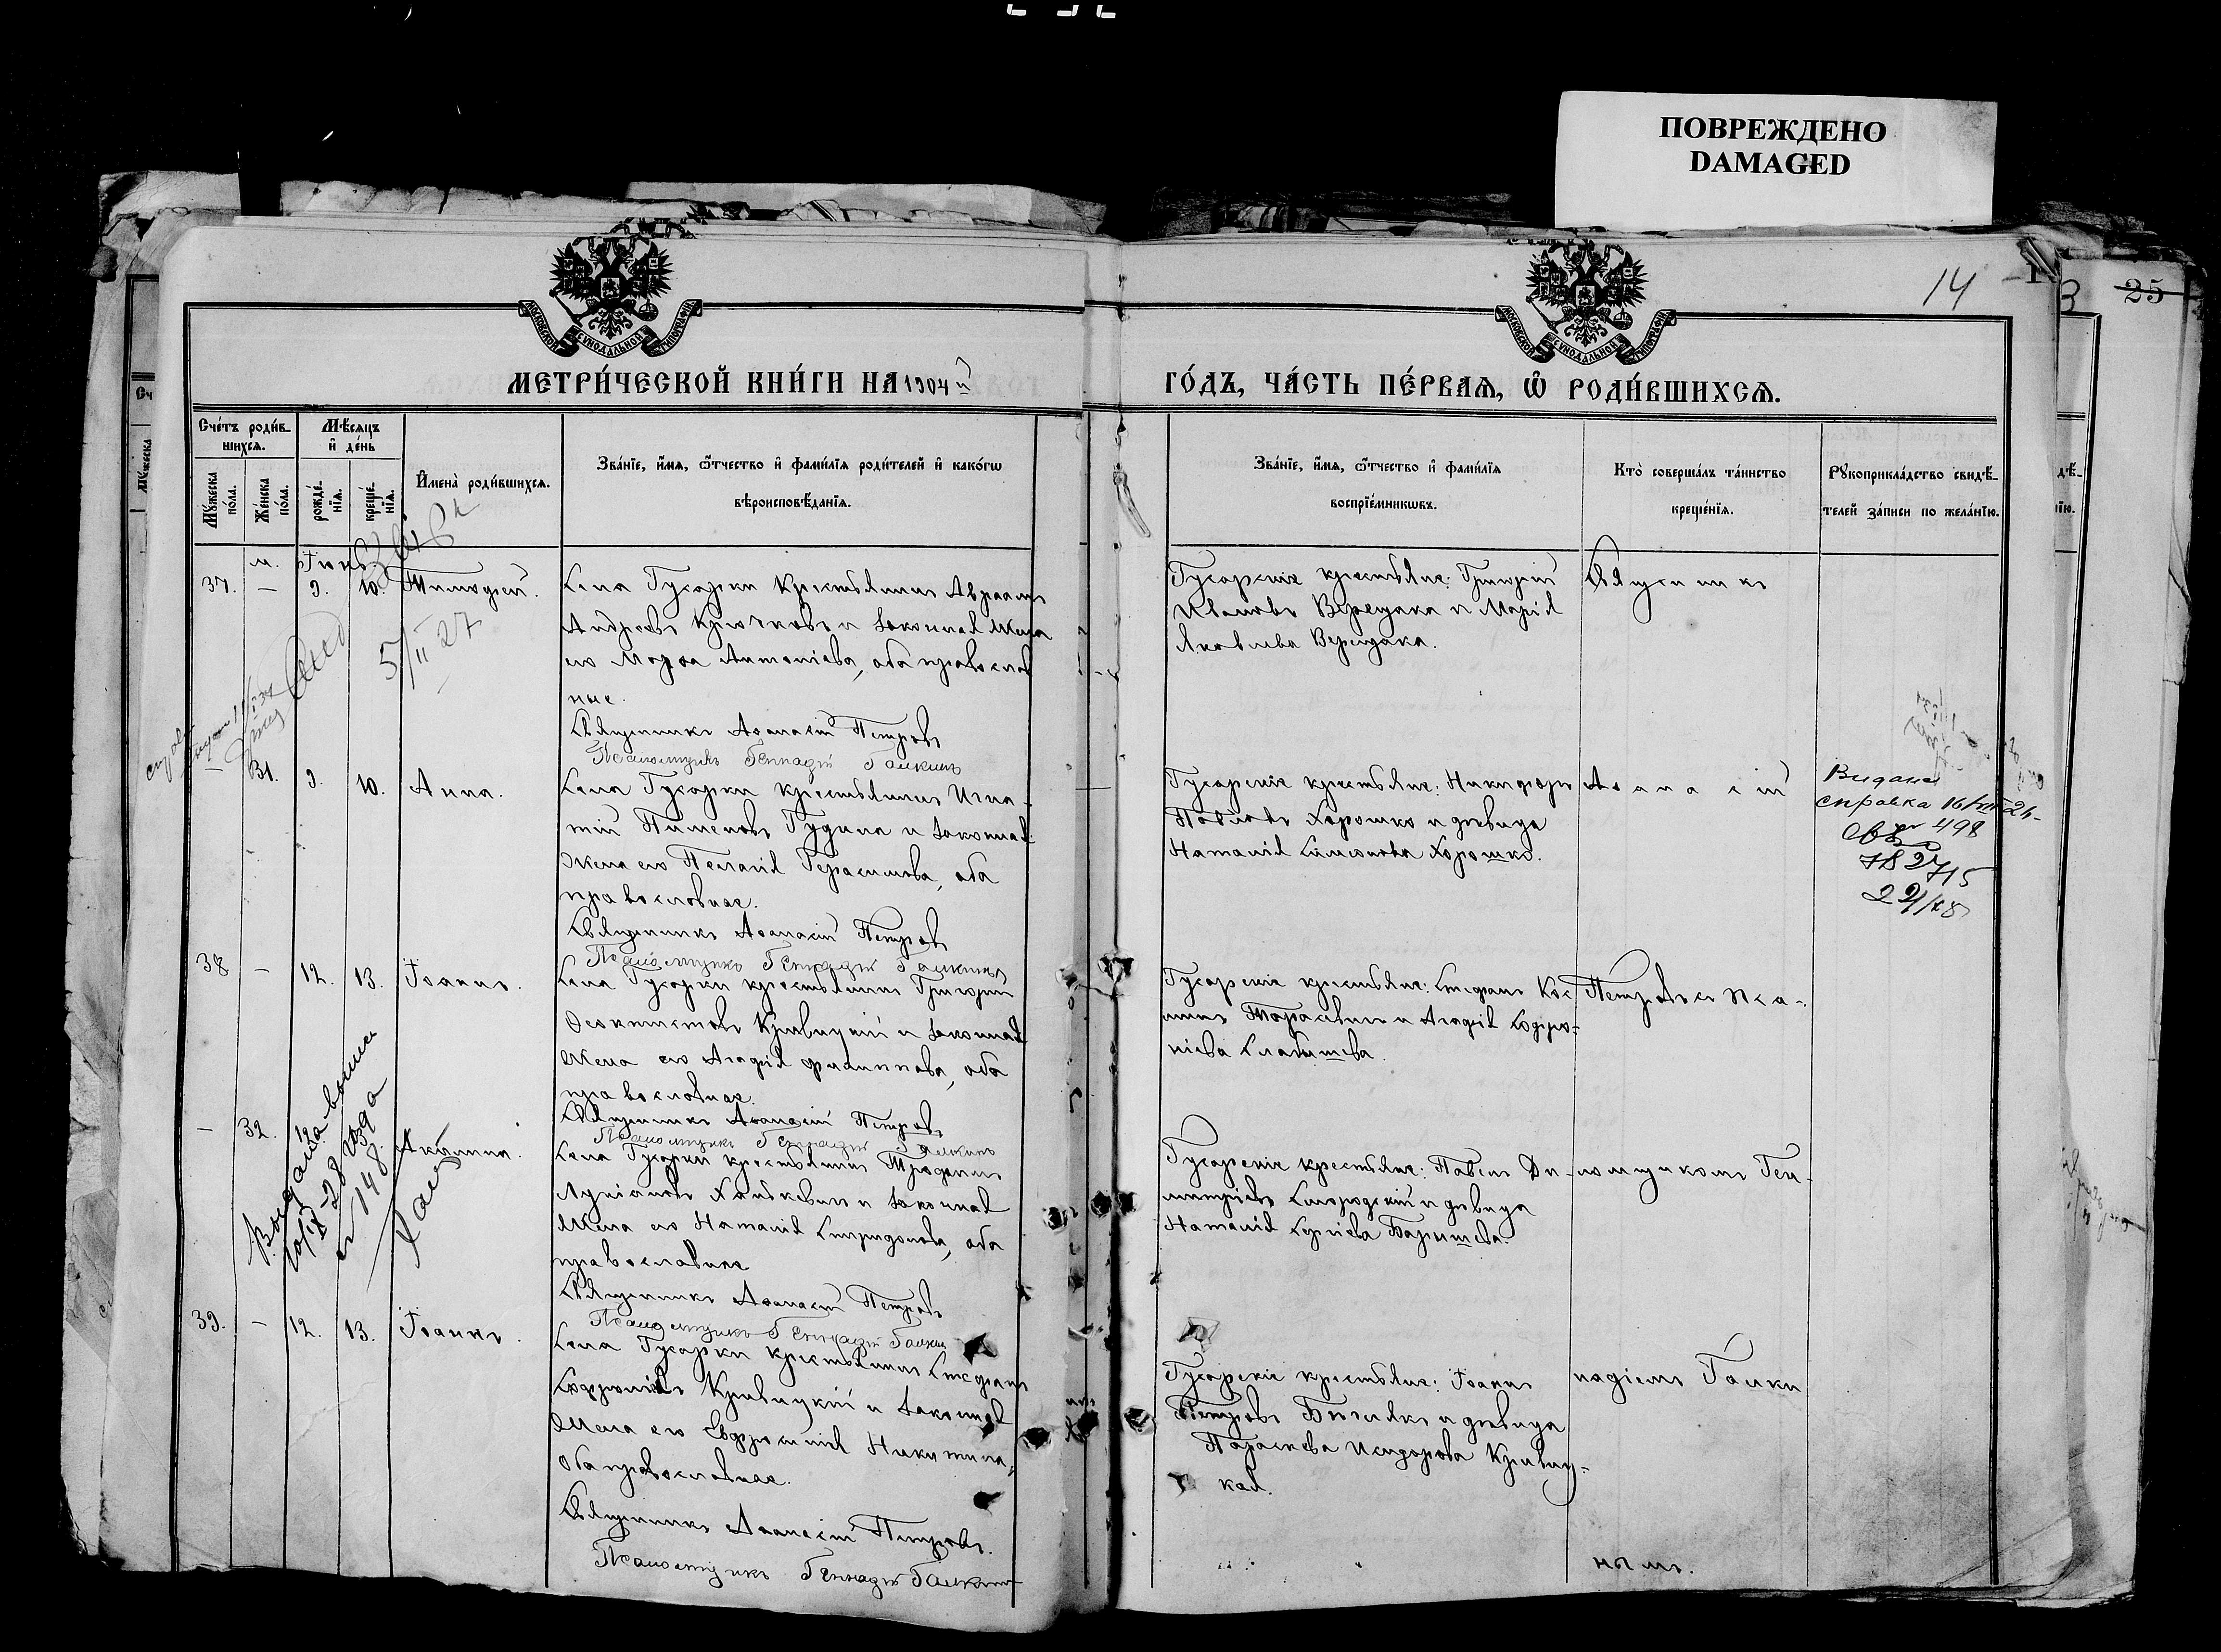 ПОВРЕЖДЕНО
DAMAGED
14
25
МОСКОВСКОЙ СѴНОДАЛЬНОЙ ТИПОГРАФІИ
МОСКОВСКОЙ СѴНОДАЛЬНОЙ ТИПОГРАФІИ
МЕТРИ́ЧЕСКОЙ КНИ́ГИ НА 1904 й
ГО́ДЪ, ЧА́СТЬ ПЕ́РВАѦ, Ѡ҆ РОДИ́ВШИХСѦ.
Сче́тъ роди́в-
шихсѧ.
Мꙋ́жеска по́ла.
Же́нска по́ла.
Мѣ́сѧцъ
и҆ де́нь
рожде́-нїѧ.
креще́-нїѧ.
И҆мена̀ роди́вшихсѧ.
Зва́нїе, и҆́мѧ, ѻ҆́тчество и҆ фами́лїѧ роди́телей и҆ како́гѡ
вѣроисповѣ́данїѧ.
Зва́нїе, и҆́мѧ, ѻ҆́тчество и҆ фами́лїѧ
воспрїе́мникѡвъ.
Кто̀ соверша́лъ та́инство
креще́нїѧ.
Рꙋкоприкла́дство свидѣ́-
телей за́писи по жела́нїю.
м. Іюнь
37. — 9. 10. Тимофей.
Села Гусарки крестьянинъ Авраамъ
Андреевъ Крючковъ и законная жена
его Марѳа Антоніева, оба православ
ные.
Священникъ Аѳанасій Петровъ
Псаломщикъ Геннадій Галкинъ
Гусарскіе крестьяне: Григорій
Ивановъ Верещака и Марія
Яковлева Верещака.
Священникъ
5/II 27
— 31. 9. 10. Анна.
Села Гусарки крестьянинъ Игна-
тій Пименовъ Гудина и законная
жена его Пелагія Герасимова, оба
православные.
Священникъ Аѳанасій Петровъ
Псаломщикъ Геннадій Галкинъ
Гусарскіе крестьяне: Никифоръ
Павловъ Хорошко и дѣвица
Наталія Симеонова Хорошко.
Аѳанасій
Видана
справка
№ 498
38 — 12. 13. Іоаннъ.
Села Гусарки крестьянинъ Григорій
Ѳеоктистовъ Кривицкій и законная
жена его Агафія Филиппова, оба
православные.
Священникъ Аѳанасій Петровъ
Псаломщикъ Геннадій Галкинъ
Гусарскіе крестьяне: Стефанъ Кос
минъ Тарасевичъ и Агафія Софро-
ніева Слабышева.
Петровъ съ Пса-
— 32. 12. Акилина.
Села Гусарки крестьянинъ Трофимъ
Лукіановъ Ханкевичъ и законная
жена его Наталія Спиридонова, оба
православные
Священникъ Аѳанасій Петровъ
Псаломщикъ Геннадій Галкинъ
Гусарскіе крестьяне: Павелъ Ди-
митріевъ Смородскій и дѣвица
Наталія Сергіева Барышева.
ломщикомъ Ген-
39. — 12. 13. Іоаннъ.
Села Гусарки крестьянинъ Стефанъ
Софроніевъ Кривицкій и законная
жена его Евфросинія Никитина,
оба православные.
Священникъ Аѳанасій Петровъ.
Псаломщикъ Геннадій Галкинъ
Гусарскіе крестьяне: Іоаннъ
Петровъ Бѣлякъ и дѣвица
Параскева Исидорова Кривиц-
кая.
надіемъ Галки
нымъ.